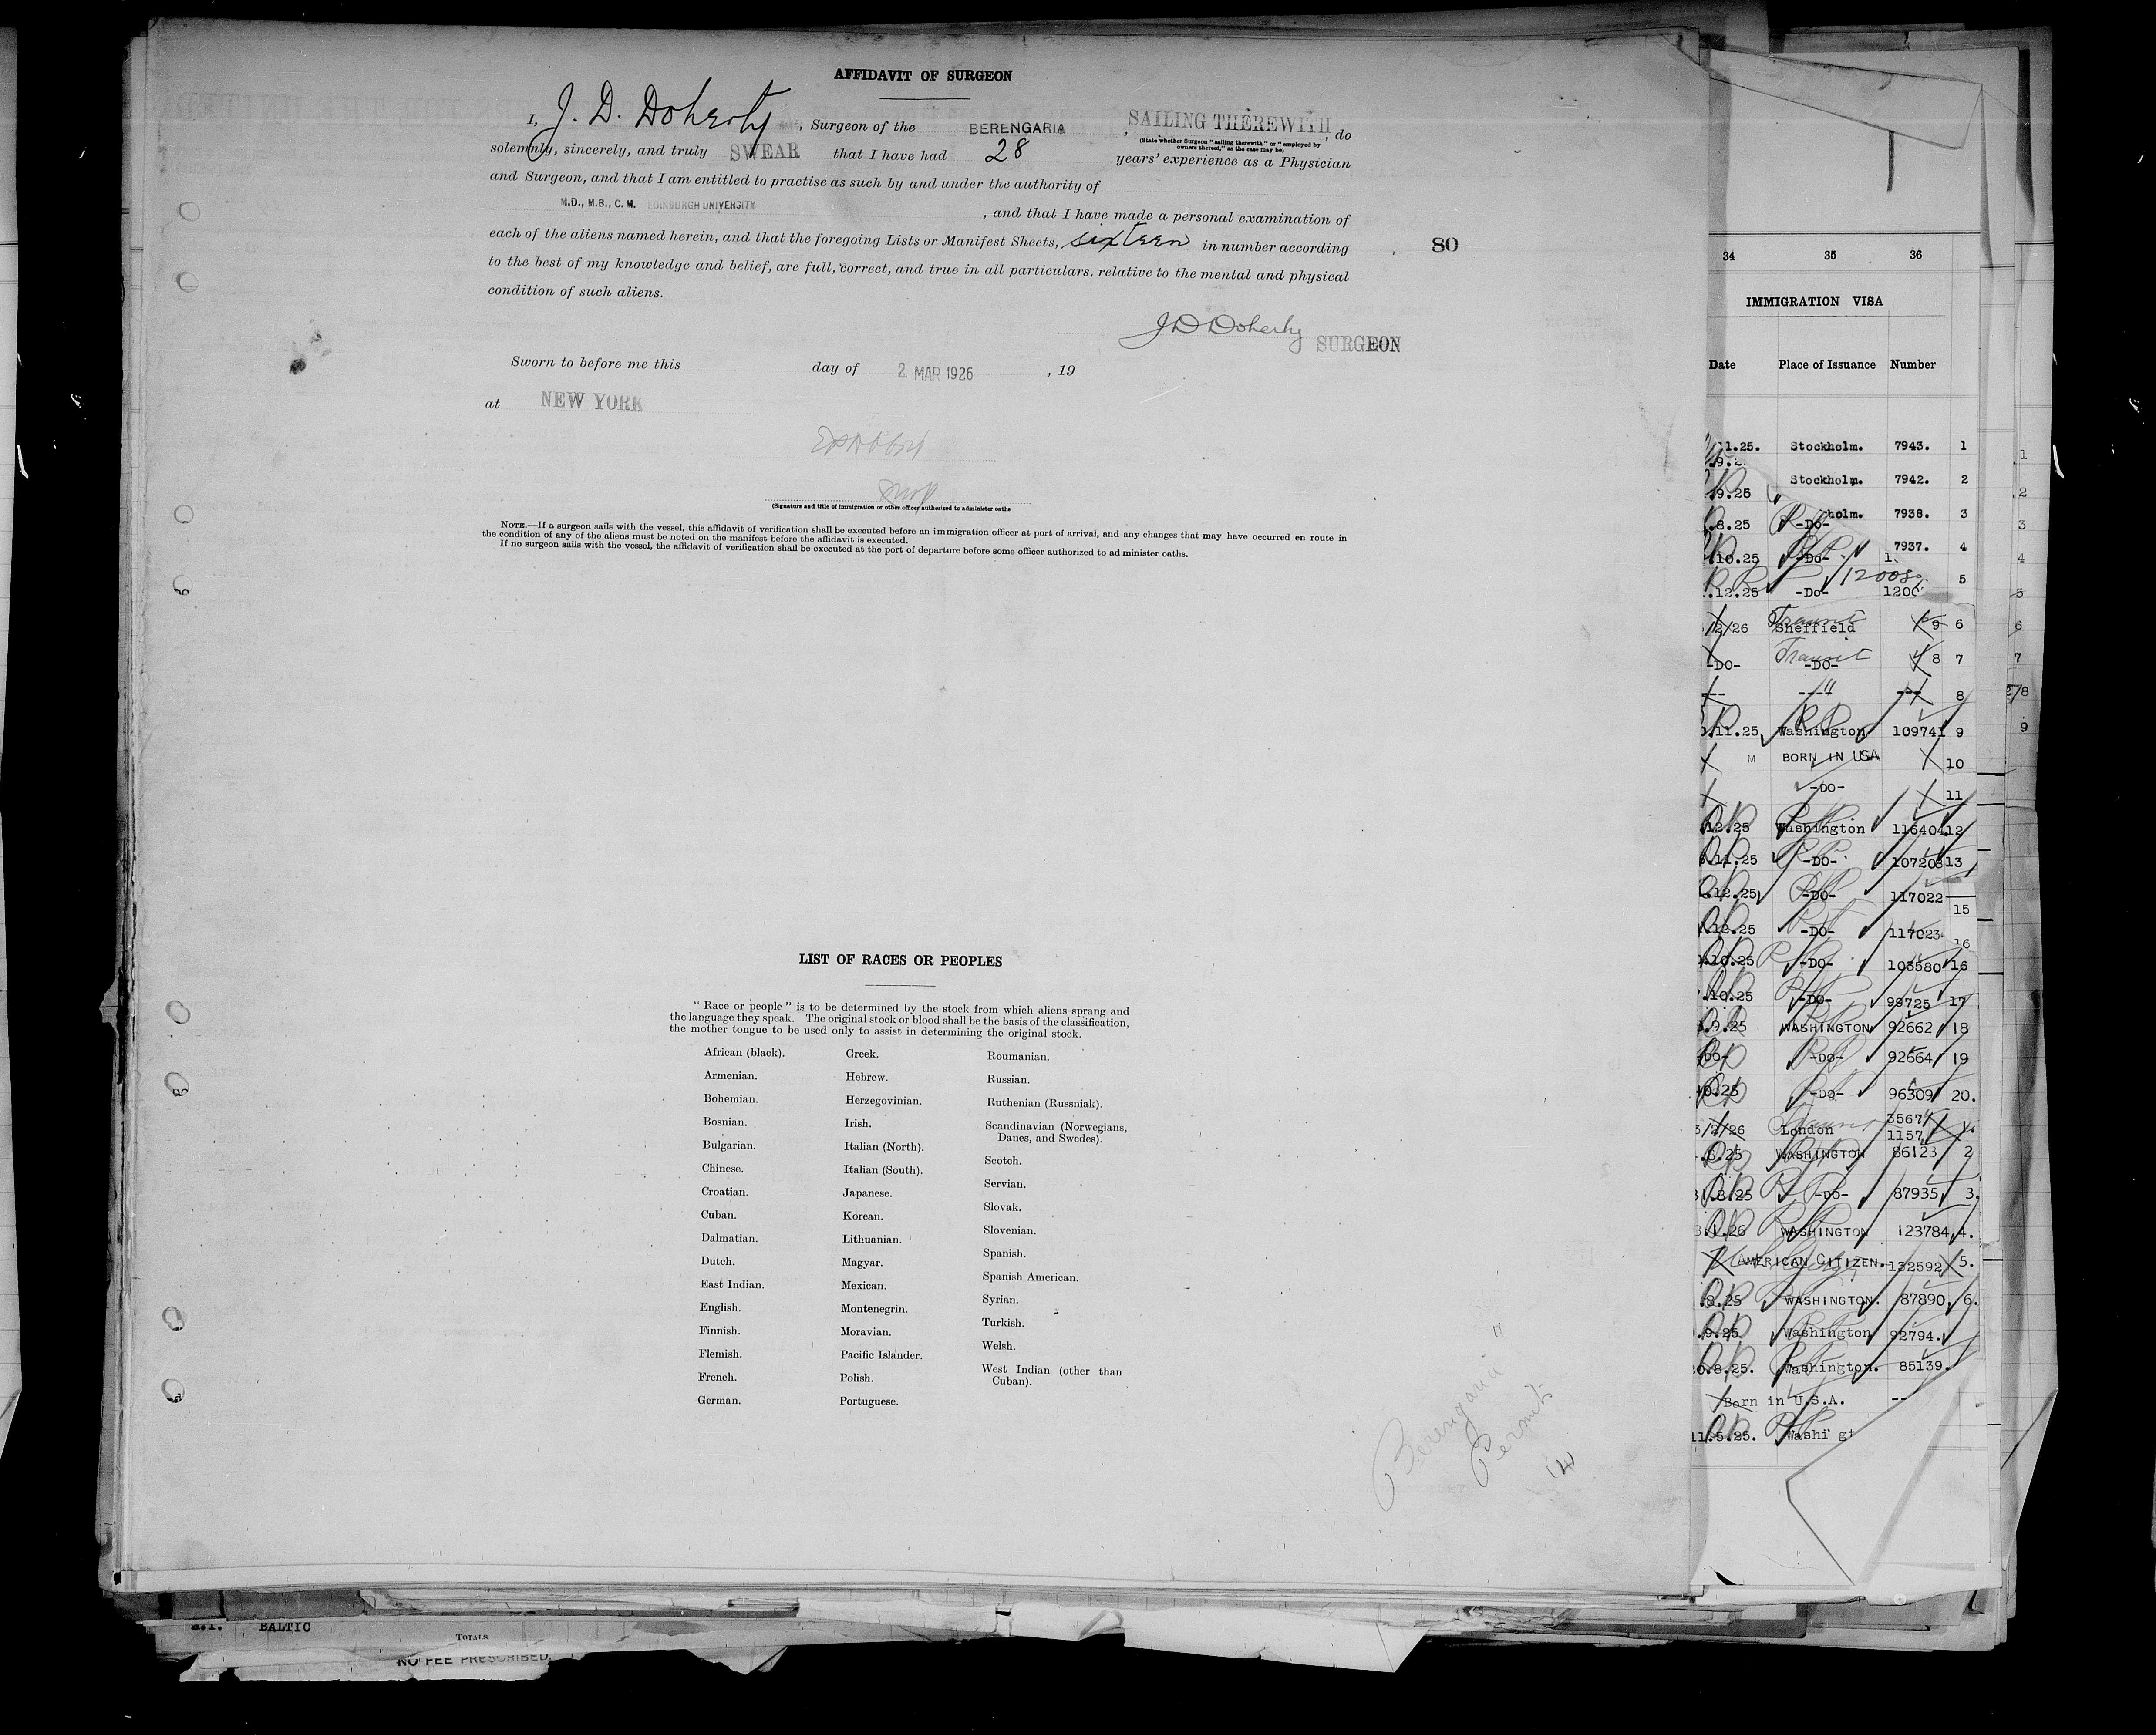 AFFIDAVIT OF SURGEON
I, J. D. Doherty, Surgeon of the BERENGARIA, SAILING THEREWITH, do
(State whether Surgeon "sailing therewith" or "employed by
owners thereof," as the case may be)
solemnly, sincerely, and truly SWEAR that I have had 28 years' experience as a Physician
and Surgeon, and that I am entitled to practise as such by and under the authority of
M.D., M.B., C.M. EDINBURGH UNIVERSITY, and that I have made a personal examination of
each of the aliens named herein, and that the foregoing Lists or Manifest Sheets, sixteen in number according
80
to the best of my knowledge and belief, are full, correct, and true in all particulars, relative to the mental and physical
condition of such aliens.
J D Doherty SURGEON
Sworn to before me this day of 2 MAR 1926, 19
at NEW YORK
(Signature and title of immigration or other officer authorized to administer oaths
NOTE.—If a surgeon sails with the vessel, this affidavit of verification shall be executed before an immigration officer at port of arrival, and any changes that may have occurred en route in
the condition of any of the aliens must be noted on the manifest before the affidavit is executed.
If no surgeon sails with the vessel, the affidavit of verification shall be executed at the port of departure before some officer authorized to administer oaths.
LIST OF RACES OR PEOPLES
"Race or people" is to be determined by the stock from which aliens sprang and
the language they speak. The original stock or blood shall be the basis of the classification,
the mother tongue to be used only to assist in determining the original stock.
African (black).
Armenian.
Bohemian.
Bosnian.
Bulgarian.
Chinese.
Croatian.
Cuban.
Dalmatian.
Dutch.
East Indian.
English.
Finnish.
Flemish.
French.
German.
Greek.
Hebrew.
Herzegovinian.
Irish.
Italian (North).
Italian (South).
Japanese.
Korean.
Lithuanian.
Magyar.
Mexican.
Montenegrin.
Moravian.
Pacific Islander.
Polish.
Portuguese.
Roumanian.
Russian.
Ruthenian (Russniak).
Scandinavian (Norwegians,
Danes, and Swedes).
Scotch.
Servian.
Slovak.
Slovenian.
Spanish.
Spanish American.
Syrian.
Turkish.
Welsh.
West Indian (other than
Cuban).
Berengaria "
Permits
14
34 35 36
IMMIGRATION VISA
Date Place of Issuance Number
1.25. Stockholm. 7943. 1
Stockholm. 7942. 2
9.25
8.25 -Do- holm. 7938. 3
10.25 -Do- 7937. 4
12008 5
.12.25 -Do- 1200
/2/26 Transit Sheffield 9 6
-DO- Transit -DO- 8 7
8
.11.25 Washington 109741 9
M BORN IN USA 10
-DO- 11
12.25 Washington 116404 12
.11.25 -DO- 107208 13
.12.25 -DO- 117022
15
.12.25 -DO- 117023
16
.10.25 -DO- 103580 16
.10.25 -DO- 99725 17
.9.25 WASHINGTON 92662 18
-DO- -DO- 92664 19
10.25 -DO- 96309 20.
3567
/26 London 1157
.6.25 WASHINGTON 86123 2
31.8.25 -DO- 87935 3.
.1.26 WASHINGTON 123784 4.
AMERICAN CITIZEN. 132592 5.
.8.25 WASHINGTON. 87890 6.
.9.25 Washington 92794.
20.8.25. Washington. 85139.
Born in U.S.A. --
11.5.25. Washi gt
1
2
3
4
5
6
7
8
9
BALTIC
TOTALS
NO FEE PRESCRIBED.